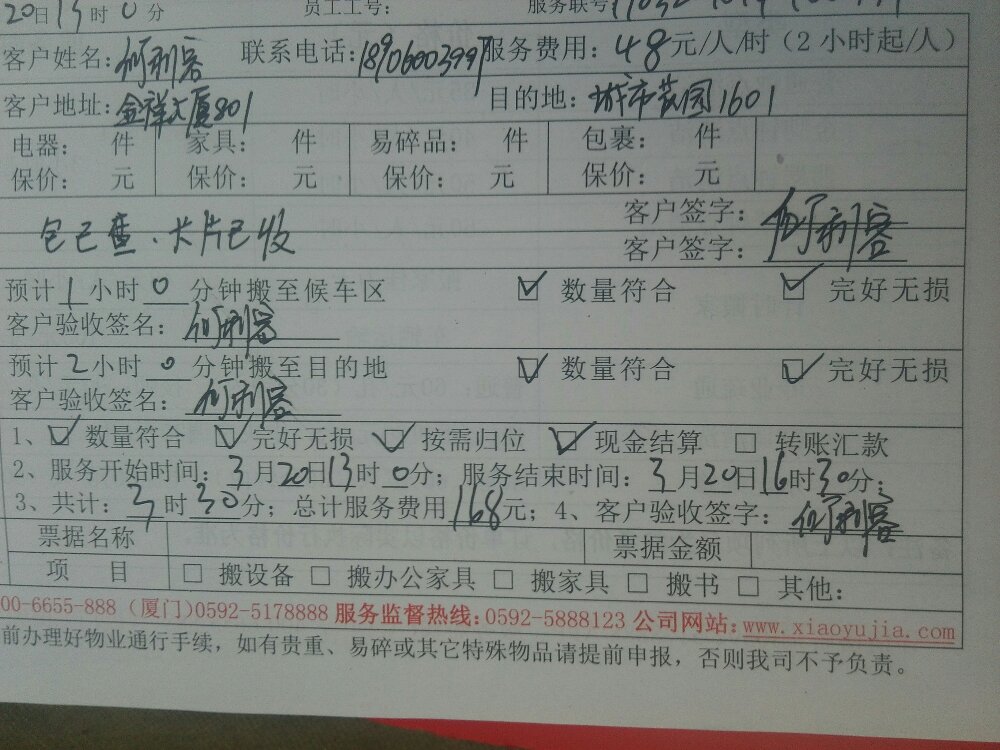 20日13时0分 员工工号: 服务联号:
客户姓名: 何利容 联系电话:18906003997 服务费用: 48元/人/时（2小时起/人）
客户地址: 金祥大厦801 目的地: 城市花园1601
电器: 件 家具: 件 易碎品: 件 包裹: 件
保价: 元 保价: 元 保价: 元 保价: 元
客户签字: 何利容
包已查、卡片已收
客户签字:
预计1小时0分钟搬至候车区 ☑ 数量符合 ☑ 完好无损
客户验收签名: 何利容
预计2小时0分钟搬至目的地 ☑ 数量符合 ☑ 完好无损
客户验收签名: 何利容
1、☑ 数量符合 ☑ 完好无损 ☑ 按需归位 ☑ 现金结算 □ 转账汇款
2、服务开始时间: 3月20日13时0分; 服务结束时间: 3月20日16时30分;
3、共计: 3时30分; 总计服务费用168元; 4、客户验收签字: 何利容
票据名称 票据金额
项 目 □ 搬设备 □ 搬办公家具 □ 搬家具 □ 搬书 □ 其他:
00-6655-888（厦门）0592-5178888 服务监督热线:0592-5888123 公司网站:www.xiaoyujia.com
前办理好物业通行手续，如有贵重、易碎或其它特殊物品请提前申报，否则我司不予负责。